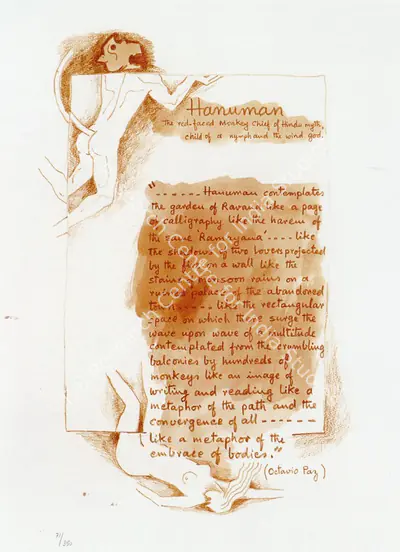 Hanuman
The red-faced Monkey Chief of Hindu myth,
child of a nymph and the wind god.
"------- Hanuman contemplates
the garden of Ravana like a page
of calligraphy like the harem of
the same Ramayana ---- like
the shadows of two lovers projected
by the fire on a wall like the
stains of monsoon rains on a
ruined palace of the abandoned
town ----- like the rectangular
space on which they surge the
wave upon wave of a multitude
contemplated from the crumbling
balconies by hundreds of
monkeys like an image of
writing and reading like a
metaphor of the path and the
convergence of all -------
(like a metaphor of the
embrace of bodies."
(Octavio Paz)
for India Stud